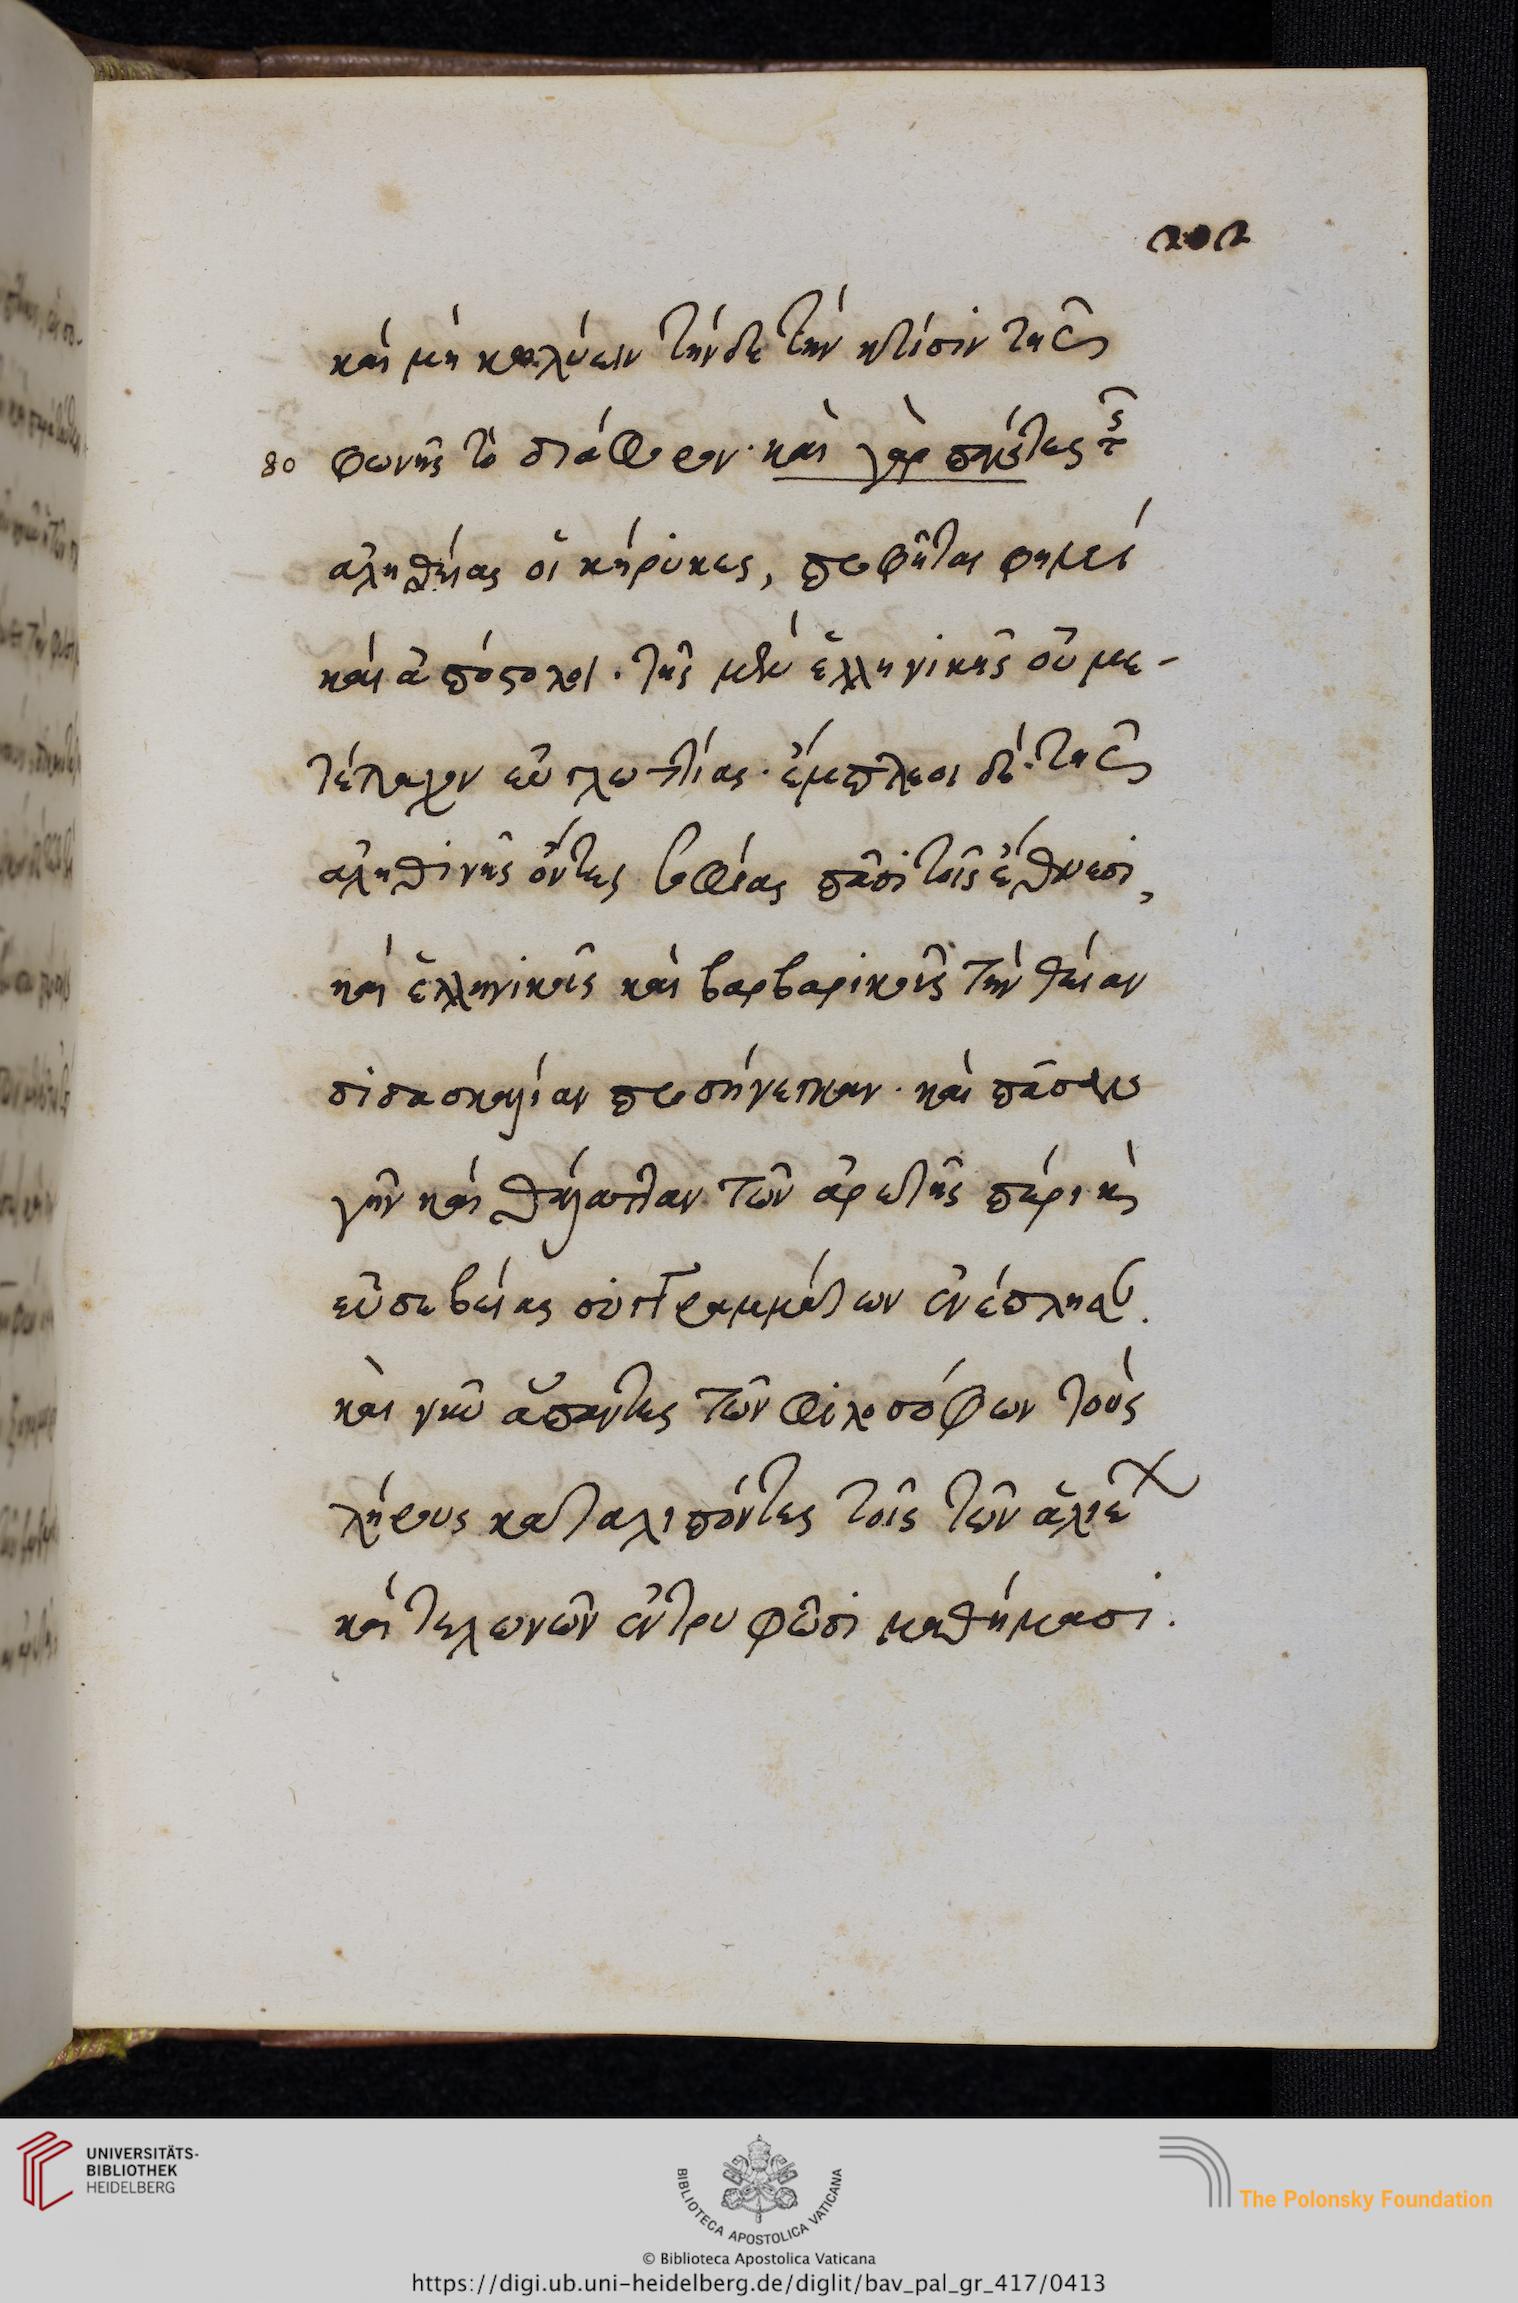 202
καὶ μὴ κωλύειν τήνδε τὴν κτίσιν τῆς
80 φωνῆς τὸ διάφορον· καὶ γὰρ πάντες τῆς
ἀληθείας οἱ κήρυκες, προφῆται φημὶ
καὶ ἀπόστολοι· τῆς μὲν ἑλληνικῆς οὐ με-
τέλαχον εὐγλωττίας· ἔμπλεοι δὲ τῆς
ἀληθινῆς ὄντες σοφίας πᾶσι τοῖς ἔθνεσι,
καὶ ἑλληνικοῖς καὶ βαρβαρικοῖς τὴν θείαν
διδασκαλίαν προσήνεγκαν· καὶ πᾶσαν
γῆν καὶ θάλατταν τῶν ἀρετῆς πέρι καὶ
εὐσεβείας συγγραμμάτων ἐνέπλησαν.
καὶ νῦν ἅπαντες τῶν φιλοσόφων τοὺς
λήρους καταλιπόντες τοῖς τῶν ἁλιέων
καὶ τελωνῶν ἐντρυφῶσι μαθήμασι.
UNIVERSITÄTS-
BIBLIOTHEK
HEIDELBERG
BIBLIOTECA APOSTOLICA VATICANA
The Polonsky Foundation
© Biblioteca Apostolica Vaticana
https://digi.ub.uni-heidelberg.de/diglit/bav_pal_gr_417/0413